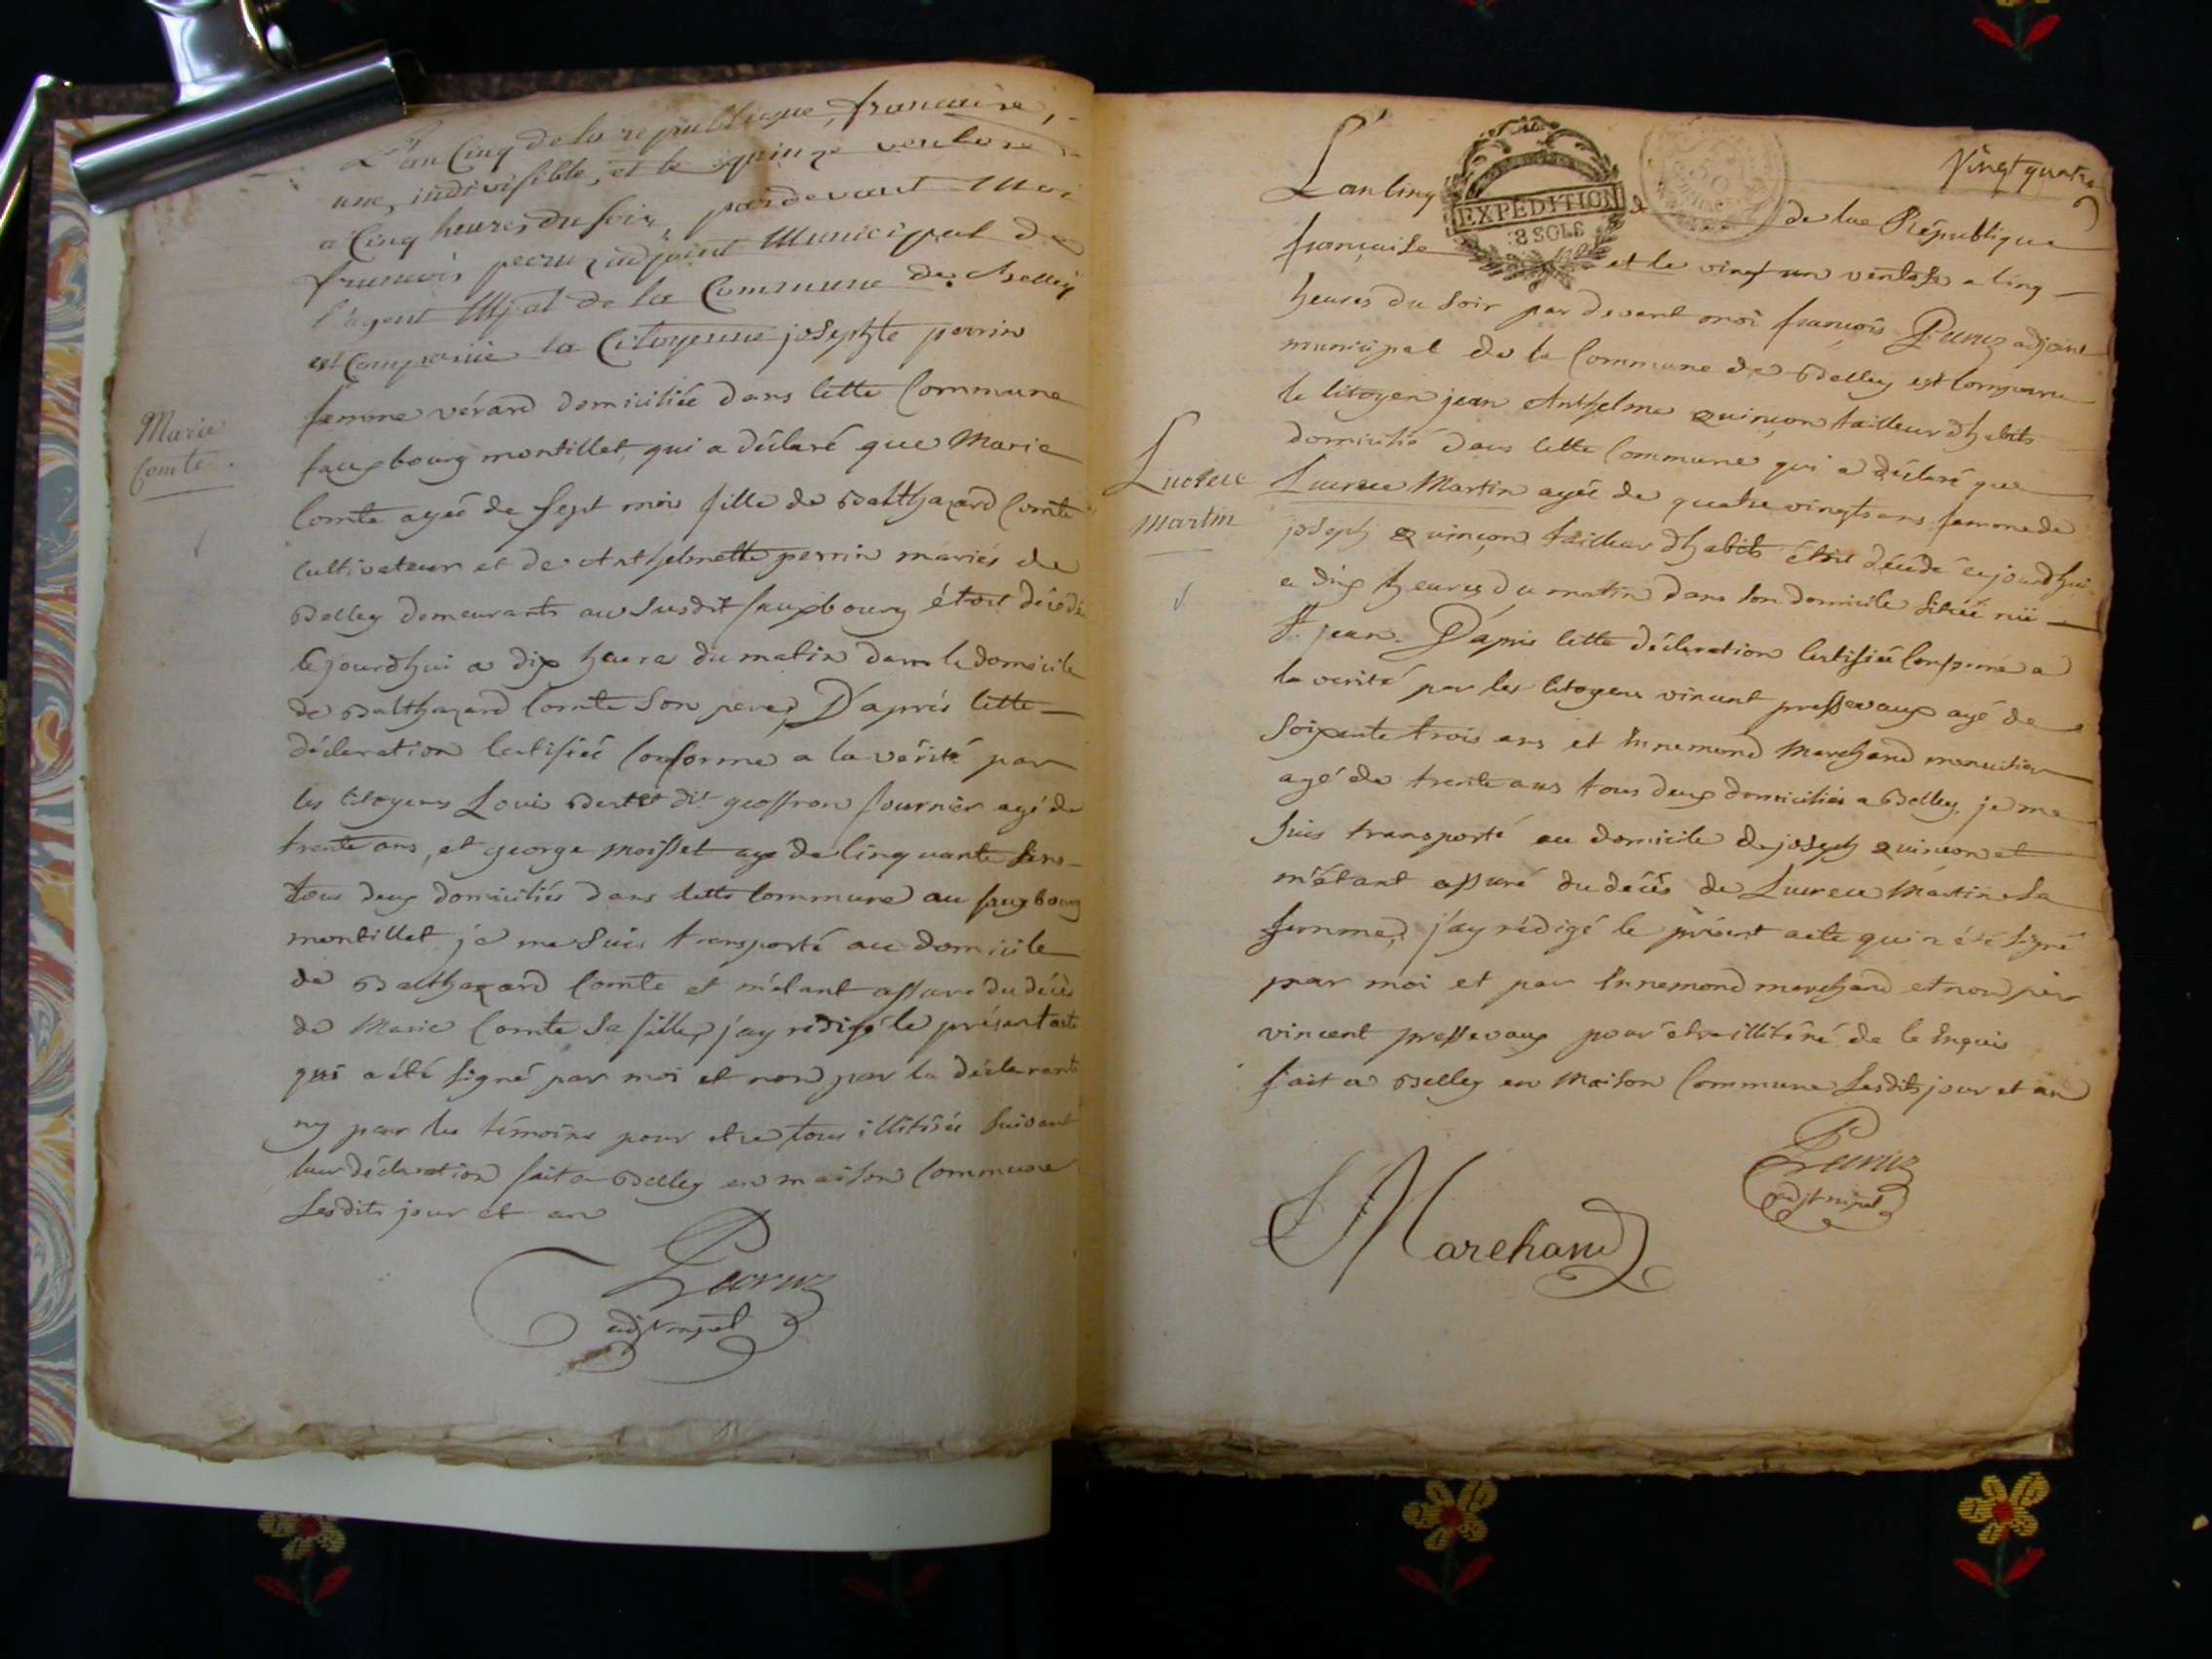 L'an Cinq de la republique, francaise,
une, indivisible, et le quinze ventose
a Cinq heures du soir, pardevant Moi
francois pecruz adjoint Municipal de
l'agent Mpal de la Commune de Belley
est Comparüe la Citoyenne josephte perrin
femme vérard domiciliée dans cette Commune
fauxbourg montillet, qui a déclaré que Marie
Comte agée de sept mois fille de Balthazard Comte
cultivateur et de Anthelmette perrin mariés de
Belley demeurants au susdit fauxbourg étoit décedée
cejourdhui a dix heures du matin dans le domicile
de Balthazard Comte son pere, D'après cette
déclaration certifiée conforme a la vérité par
les citoyens Louis Bertet dit geoffron fournier agé de
trente ans, et george moisset age de cinquante
tous deux domiciliés dans cette commune au fauxbourg
montillet je me suis transporté au domicile
de Balthazard Comte et m'étant assuré du décès
de Marie Comte sa fille, j'ay rédigé le présent acte
qui a été signé par moi et non par la déclarante
ny par les témoins pour etre tous illitérés suivant
leur déclaration fait a Belley en maison Commune
Lesdits jour et an
Pecruz
adjt mpal
Marie
Comte.
Vingt quatre
EXPÉDITION
8 SOLS
50
L'an cinq de la République
française et le vingt un ventose a cinq
heures du soir par devant moi françois Pecruz adjoint
municipal de la Commune de Belley est comparu
le citoyen jean Anthelme quinçon tailleur d'habits
domicilié dans cette Commune qui a déclaré que
Lucrece Martin agée de quatre vingts ans femme de
joseph quinçon tailleur d'habits étoit décédé cejourdhui
a dix heures du matin dans son domicile situé rüe
St. jean. D'apres cette déclaration certifiée conforme a
la verité par les citoyens vincent pressevaux agé de
soixante trois ans et Innemond Marchand menuisier
agé de trente ans tous deux domiciliés a Belley, je me
suis transporté au domicile de joseph quinçon et
m'étant assuré du décès de Lucrece Martin sa
femme, j'ay rédigé le présent acte qui a été signé
par moi et par Innemond marchand et non par
vincent pressevaux pour être illitéré de ce enquis
fait a Belley en Maison Commune Lesdits jour et an
Pecruz
adjt mpal
Marchand
Lucrece
Martin